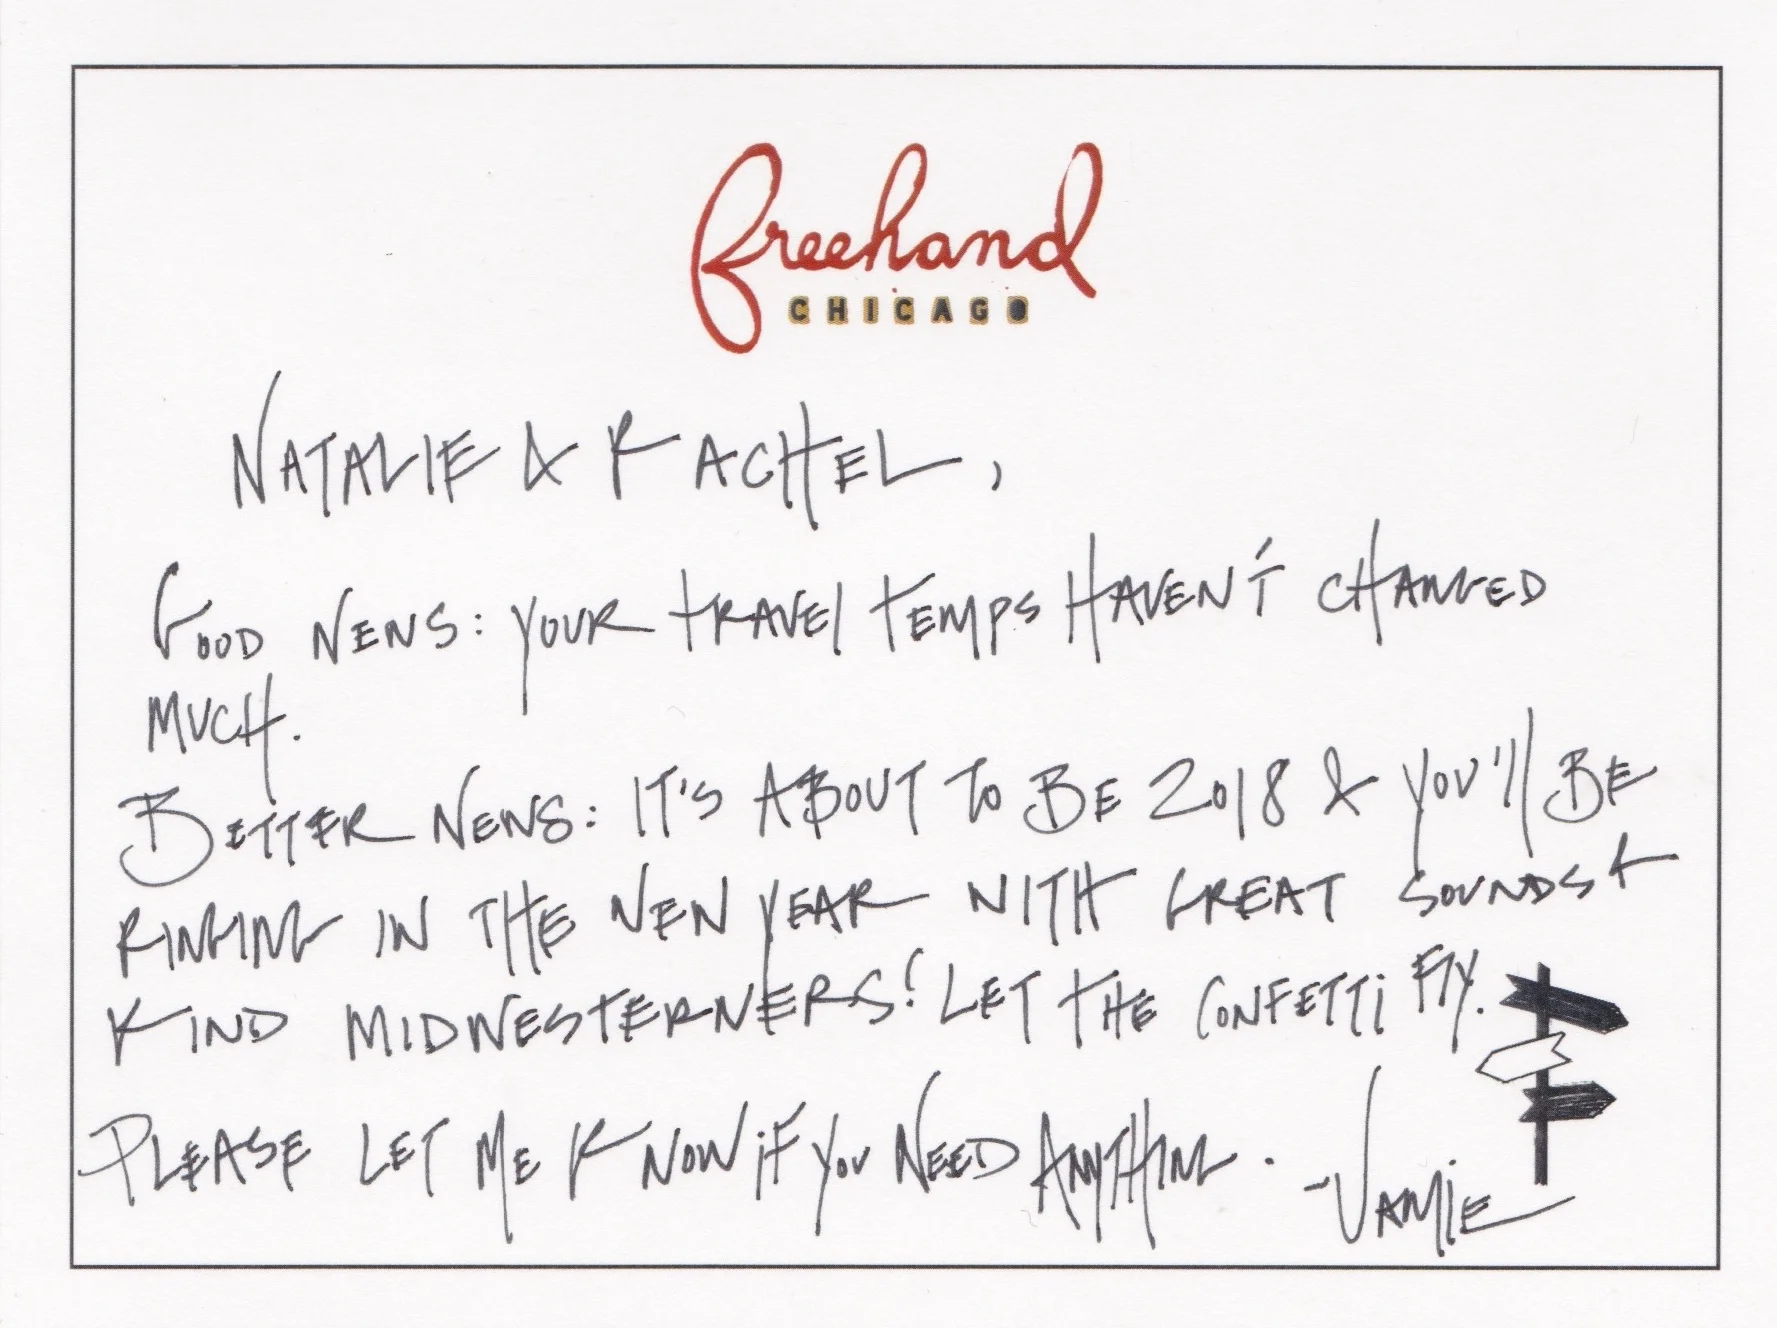 freehand
CHICAGO
NATALIE & RACHEL,
GOOD NEWS: YOUR TRAVEL TEMPS HAVEN'T CHANGED
MUCH.
BETTER NEWS: IT'S ABOUT TO BE 2018 & YOU'll BE
RINGING IN THE NEW YEAR WITH GREAT SOUNDS &
KIND MIDWESTERNERS! LET THE CONFETTi FLY.
PLEASE LET ME KNOW iF YOU NEED ANYTHING.
-JAMIE